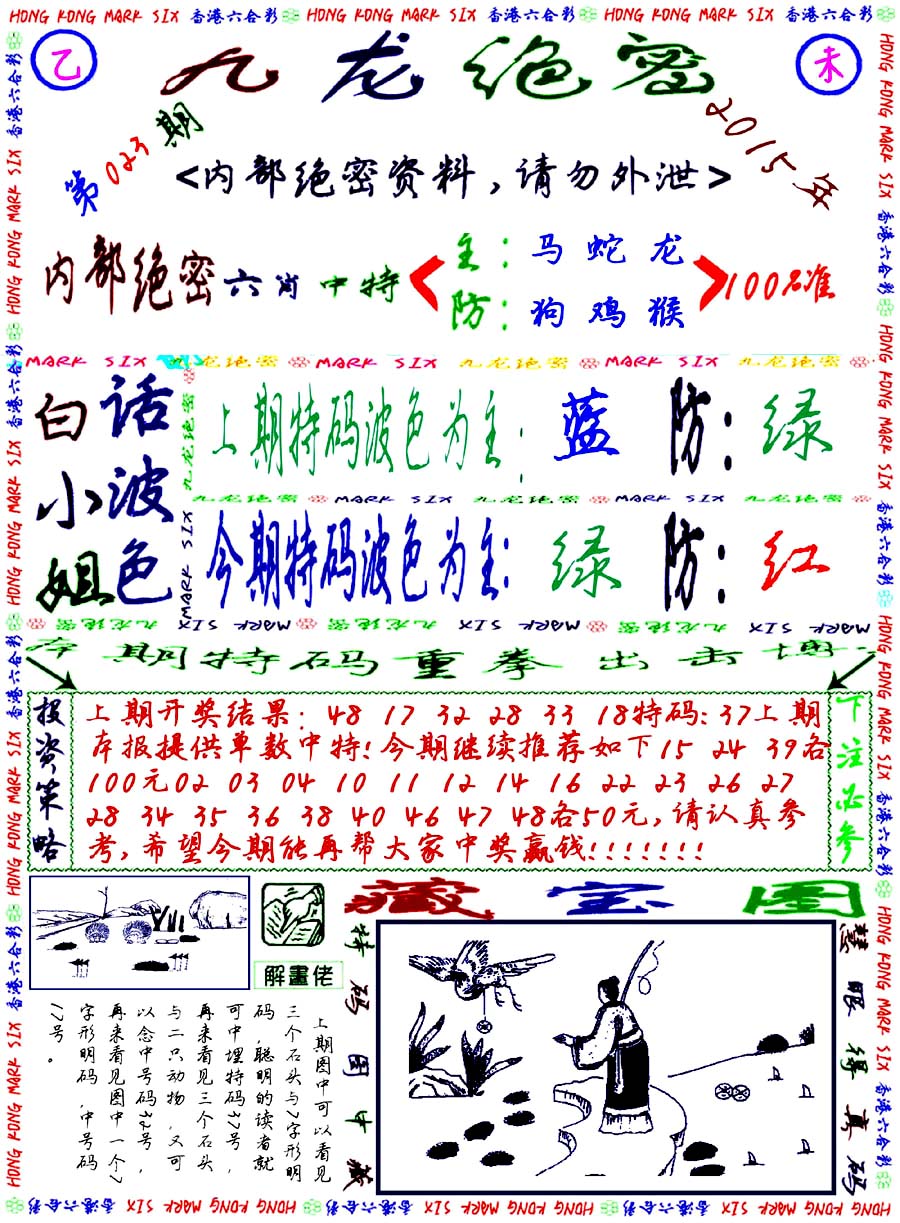 HONG KONG MARK SIX 香港六合彩 HONG KONG MARK SIX 香港六合彩 HONG KONG MARK SIX 香港六合彩
乙
九龙绝密
未
第023期
2015年
<内部绝密资料,请勿外泄>
内部绝密六肖中特
主:马 蛇 龙
防:狗 鸡 猴
100%准
MARK SIX 九龙绝密 MARK SIX 九龙绝密 MARK SIX 九龙绝密
白小姐
话波色
上期特码波色为主:蓝 防:绿
九龙绝密 MARK SIX 九龙绝密 MARK SIX 九龙绝密
今期特码波色为主:绿 防:红
九龙绝密 MARK SIX 九龙绝密 MARK SIX 九龙绝密 MARK SIX
本期特码重拳出击博
投资策略
上期开奖结果:48 17 32 28 33 18特码:37上期
本报提供单数中特!今期继续推荐如下15 24 39各
100元02 03 04 10 11 12 14 16 22 23 26 27
28 34 35 36 38 40 46 47 48各50元,请认真参
考,希望今期能再帮大家中奖赢钱!!!!!!!
下注必参
藏宝图
解畫佬
特码图中藏
慧眼得真码
上期图中可以看见
三个石头与7字形明
码,聪明的读者就
可中埋特码37号,
再来看见三个石头
与二只动物,又可
以念中号码32号,
再来看见图中一个7
字形明码,中号码
17号。
HONG KONG MARK SIX 香港六合彩 HONG KONG MARK SIX 香港六合彩 HONG KONG MARK SIX 香港六合彩